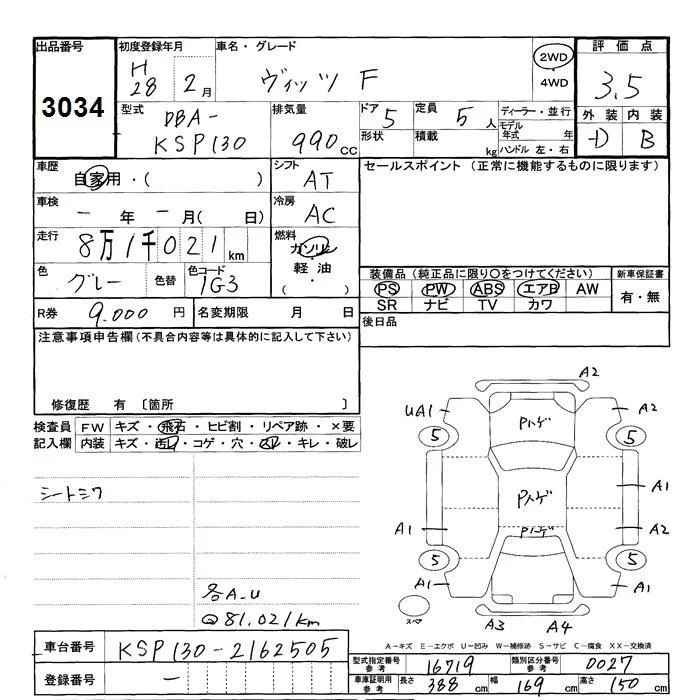 出品番号 初度登録年月 車名・グレード 評価点
3034 H28 2月 ヴィッツ F 2WD ・ 4WD 3.5
型式 排気量 ドア 定員 ディーラー・並行 外装 内装
DBA- KSP130 990cc 5 5人 モデル年式 年 D B
形状 積載 kg ハンドル 左・右
車歴 自家用・( ) シフト AT セールスポイント (正常に機能するものに限ります)
車検 - 年 - 月( 日) 冷房 AC
走行 8万1千021km 燃料 ガソリン
軽油
( ・ )
色 グレー 色替 色コード 1G3
装備品(純正品に限り○をつけてください) 新車保証書
PS PW ABS エアB AW 有・無
SR ナビ TV カワ
R券 9.000円 名変期限 月 日 後日品
注意事項申告欄(不具合内容等は具体的に記入して下さい)
修復歴 有 〔箇所 〕
検査員 FW キズ・飛石・ヒビ割・リペア跡・×要
記入欄 内装 キズ・汚レ・コゲ・穴・スレ・キレ・破レ
シートシワ
各A-U
@81.021km
A2
UA1 Pハゲ A2
5 5
Pハゲ A1
A1 Pハゲ A2
5 5
A1 A1
スペア A3 A4
A-キズ E-エクボ U-凹み W-補修跡 S-サビ C-腐食 XX-交換済
車台番号 KSP130-2162505
登録番号 -
型式指定番号 参考 16719 類別区分番号 参考 0027
車庫証明用 参考 長さ 388cm 幅 169cm 高さ 150cm